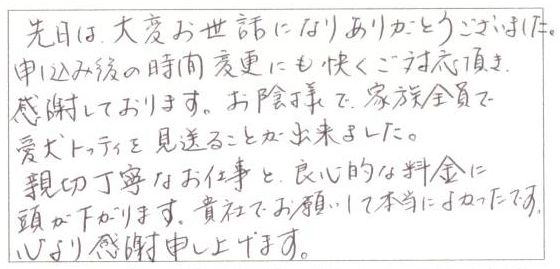 先日は、大変お世話になりありがとうございました。
申し込み後の時間変更にも快くご対応頂き、
感謝しております。お陰様で、家族全員で
愛犬トッティを見送ることが出来ました。
親切丁寧なお仕事と、良心的な料金に
頭が下がります。貴社でお願いして本当によかったです。
心より感謝申し上げます。